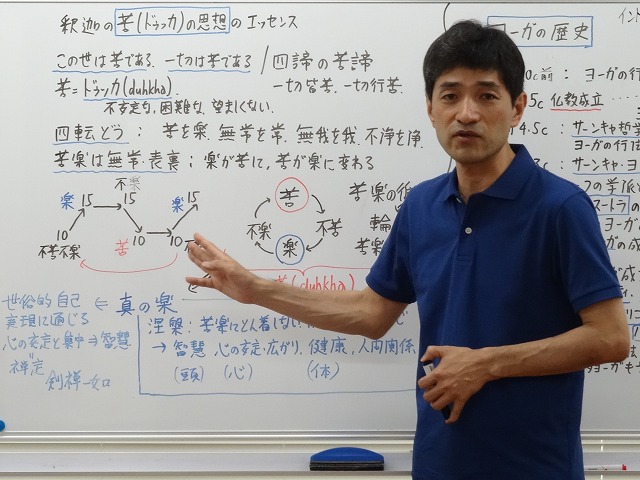 釈迦の苦(ドゥッカ)の思想のエッセンス
この世は苦である 一切は苦である / 四諦の苦諦
苦=ドゥッカ(duhkha) 一切皆苦、一切行苦
不安定な、困難な、望ましくない
四転どう: 苦を楽、無常を常、無我を我、不浄を浄
苦楽は無常・表裏: 楽が苦に、苦が楽に変わる
不楽
楽 15 15 楽 15
10 10 10
不苦不楽 苦
苦
不楽 不苦
楽
苦楽の
輪
苦楽
(duhkha)
世俗的自己 ⇐ 真の楽
実現に通じる
心の安定と集中⇒智慧
=
禅定
剣禅一如
涅槃: 苦楽にとん着しない
→ 智慧 心の安定・広がり、健康、人間関係
(頭) (心) (体)
ヨーガの歴史
イント
0c前: ヨーガの行
5c 仏教成立
4.5c: サーンキャ哲
ヨーガの行法
サーンキャ・ヨ
ストラ
ヨーガの